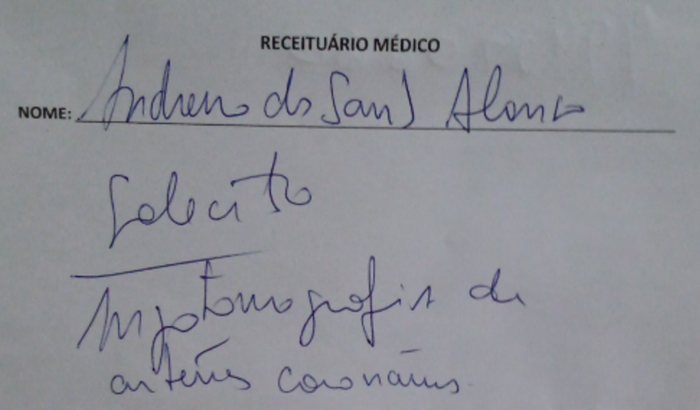 RECEITUÁRIO MÉDICO
NOME: Andreno do Sant Alonso
Solicito
Angiotomografia de
artérias coronárias